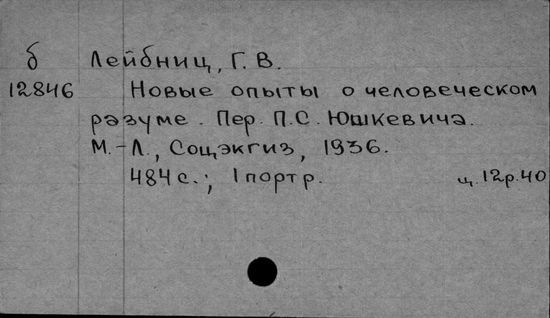 б Лейбниц, Г. В.
12846 Новые опыты о человеческом
разуме. Пер. П.С. Юшкевича.
М.-Л., Соцэкгиз, 1936.
484 с.; 1 портр. ц. 12р.40